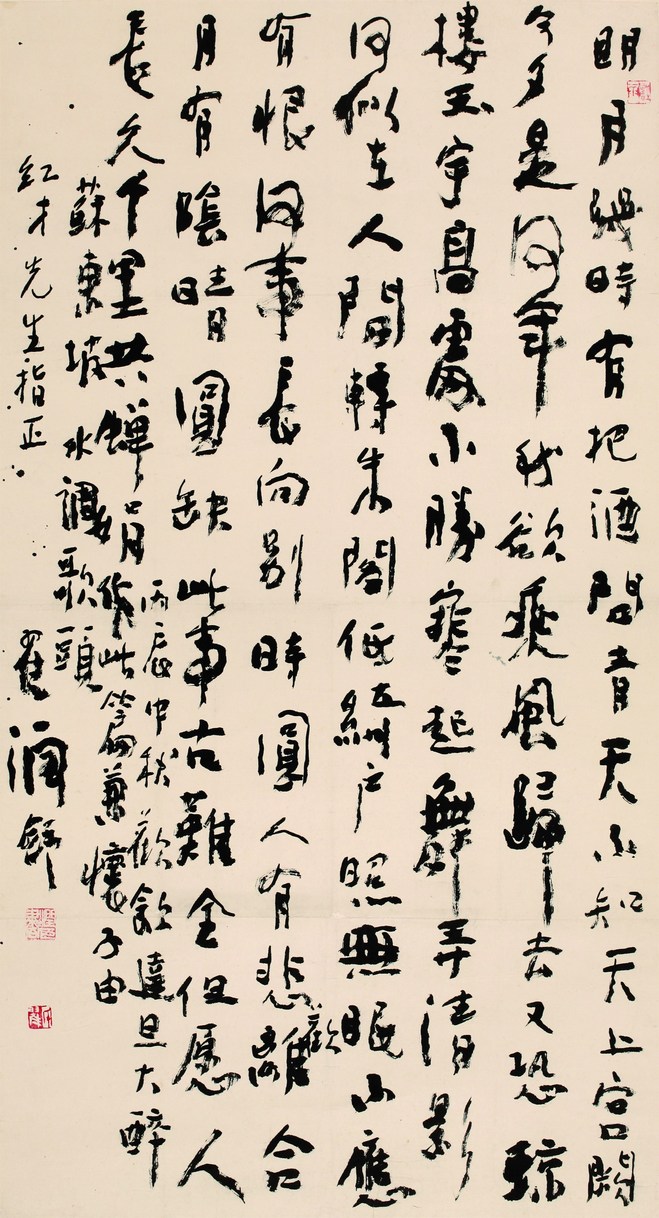 明月幾時有把酒問青天不知天上宮闕
今夕是何年我欲乘風歸去又恐瓊
樓玉宇高處不勝寒起舞弄清影
何似在人間轉朱閣低綺戶照無眠不應
有恨何事長向別時圓人有悲歡離合
月有陰晴圓缺此事古難全但愿人
長久千里共蟬娟
丙辰中秋歡飲達旦大醉
作此篇兼懷子由
蘇東坡水調歌頭
紅才先生指正
潤